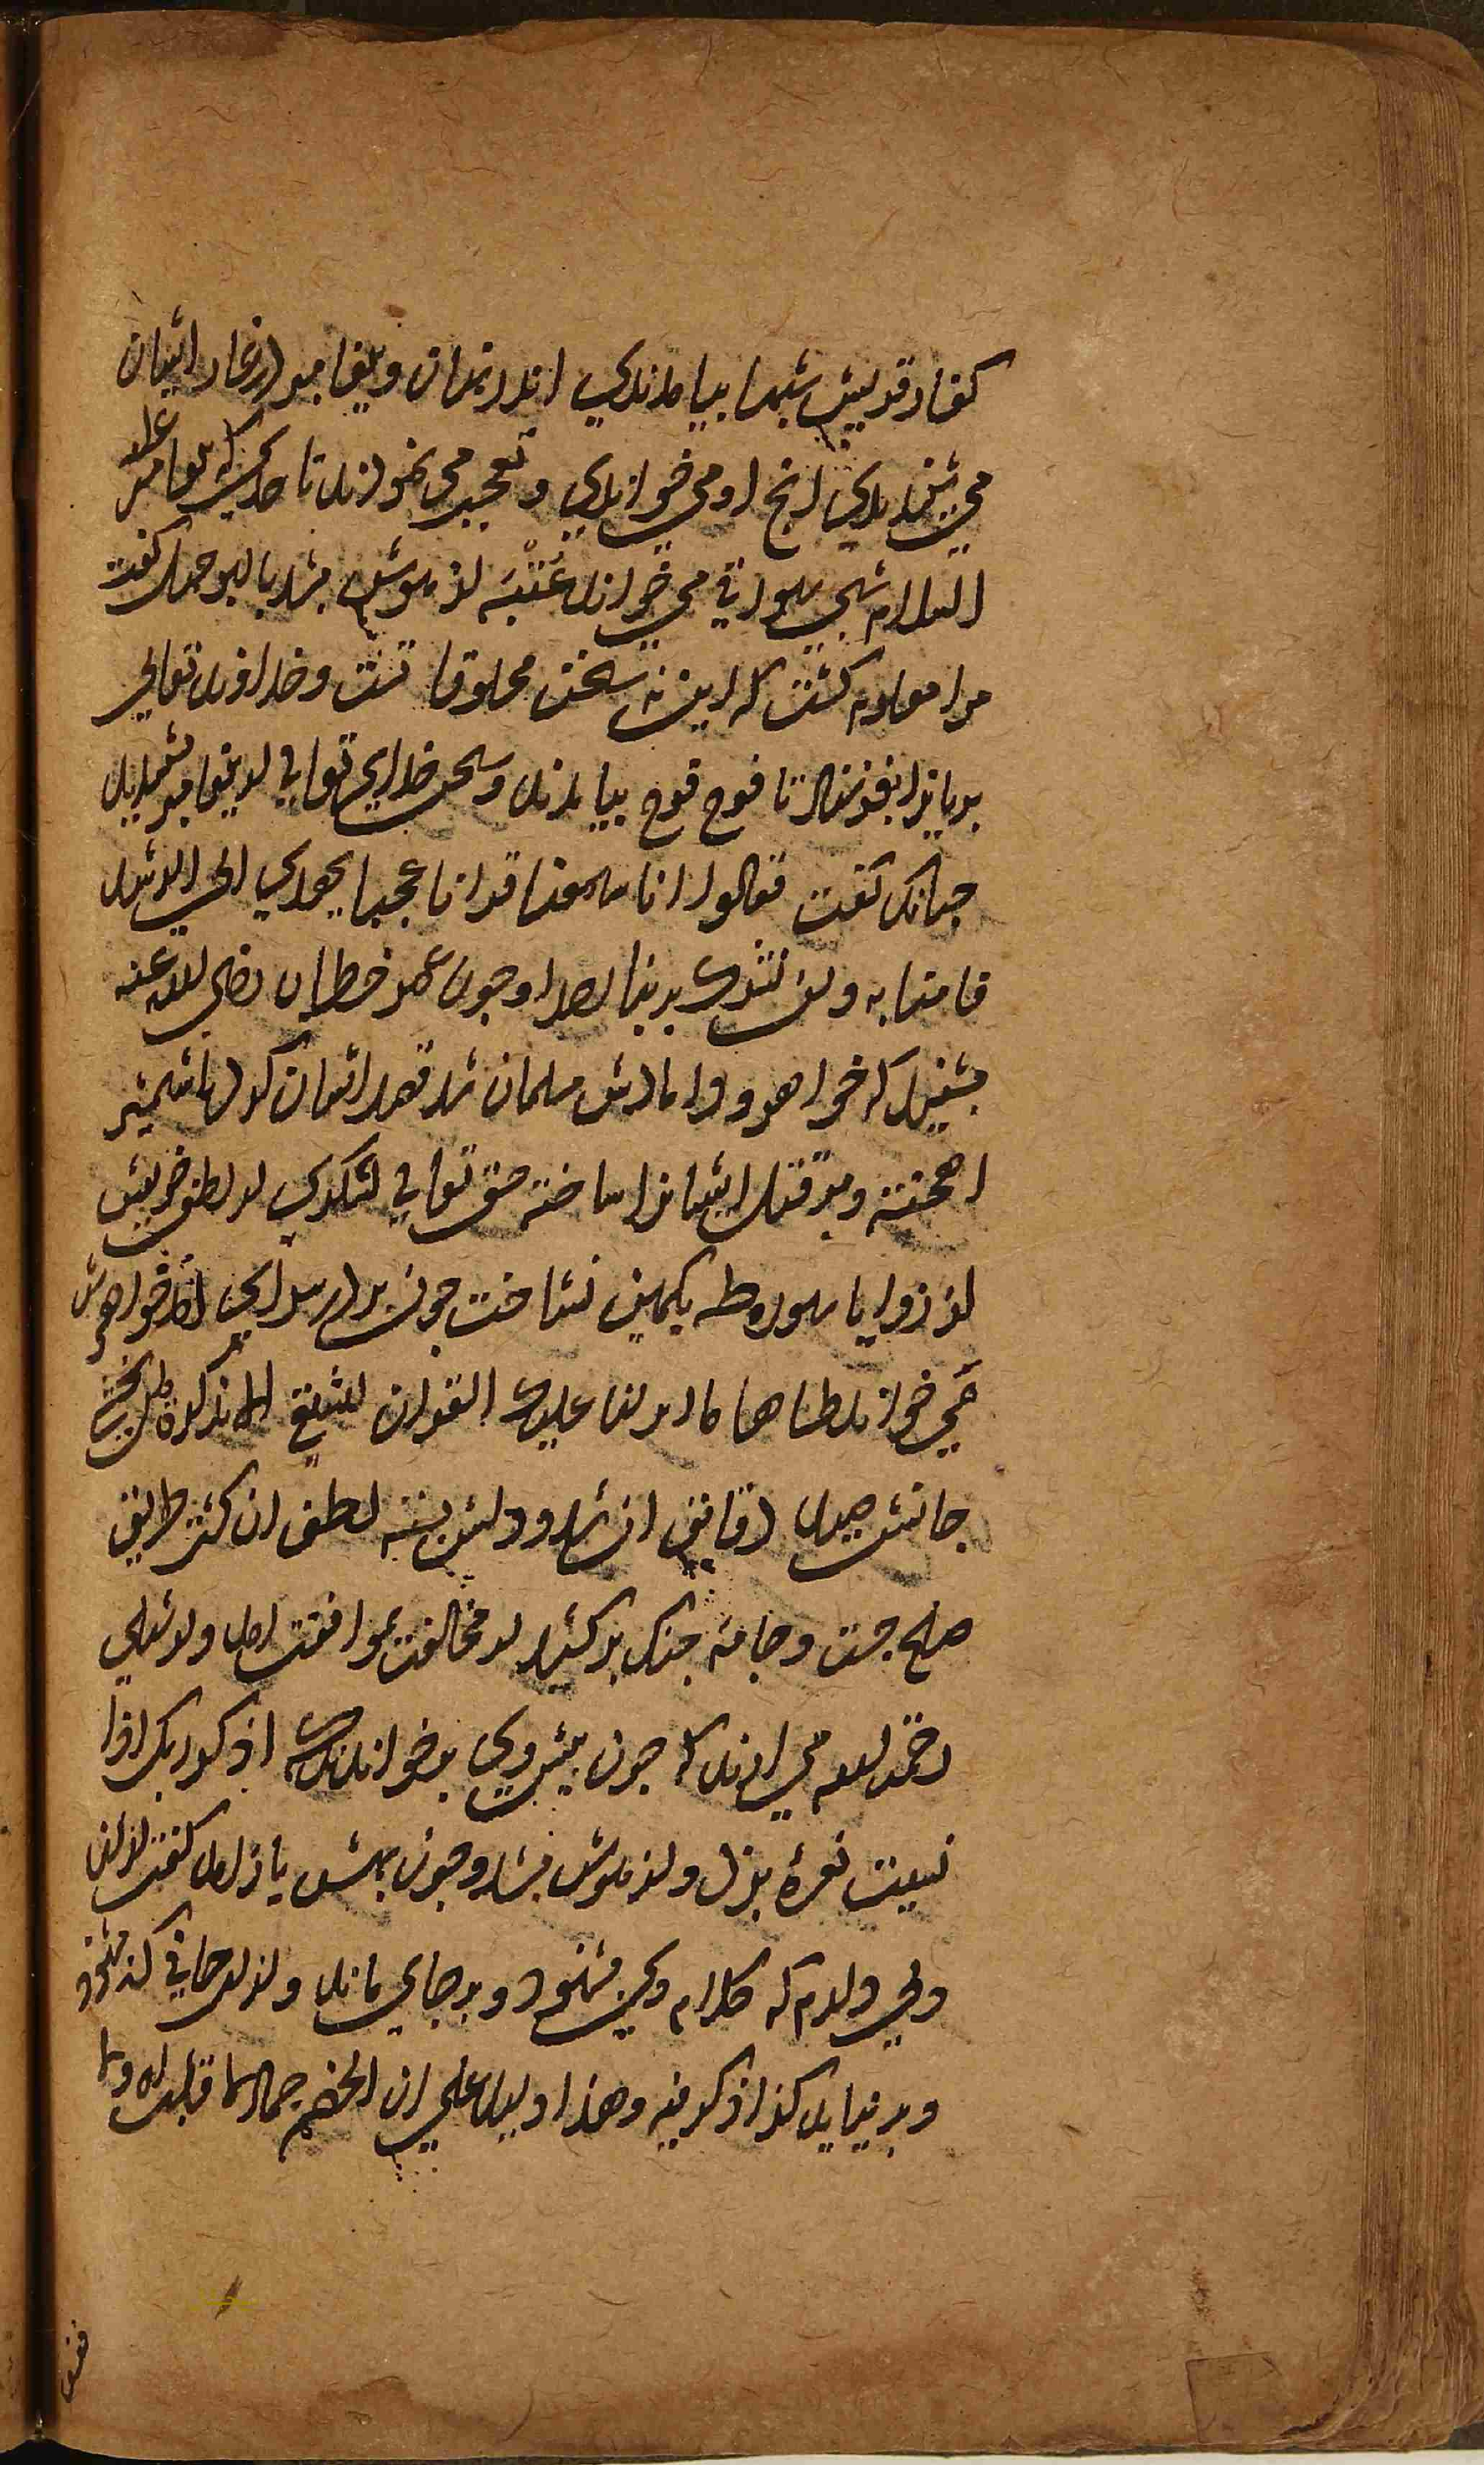 کفار قریش بشبها بیامدندی اندر نهان و پیغامبر در نماز ایشان
می شنیدندی آنچ او می خواندی و تعجب می نمودند تا حدی که پیغامبر علیه
السلام شبی سورتی می خواند عتبه از هوش بشد با بوجهل گفت
مرا معلوم گشت که این نه سخن مخلوقانست و خداوند تعالی
پریانرا بفرستاد تا فوج فوج بیامدند و سخن خدای تعالی از پیغامبر بشنیدند
چنانک گفت فقالوا انا سمعنا قرانا عجبا یهدی الی الرشد
فامنا به ولن نشرک بربنا احدا و چون عمر خطاب رضی الله عنه
بشنید که خواهر و دامادش مسلمان شد قصد ایشان کرد با شمشیر
اهخته و مر قتل ایشانرا ساخته حق تعالی لشکری از لطف خویش
اندر زوایا سوره طه بکمین نشاخت چون بدر سرای آمد خواهرش
می خواند طه ما انزلنا علیک القران لتشقی الا تذکرة لمن یخشی
جانش صید دقایق آن شد و دلش بسته لطف آن گشت طریق
صلح جست و جامه جنگ برکشید از مخالفت بموافقت آمد و از شبلی
رحمة الله می آرند که چون پیش وی برخواندند که اذکر ربک اذا
نسیت نعره بزد و از هوش بشد و چون بهش باز آمد گفت از آن
ولی دارم که کلام وی بشنود و بر جای بماند و از آن جانی که نشنود
و برنیاید کذا ذکر فیه وهذا دلیل علی ان الخصم جمال ما قابله